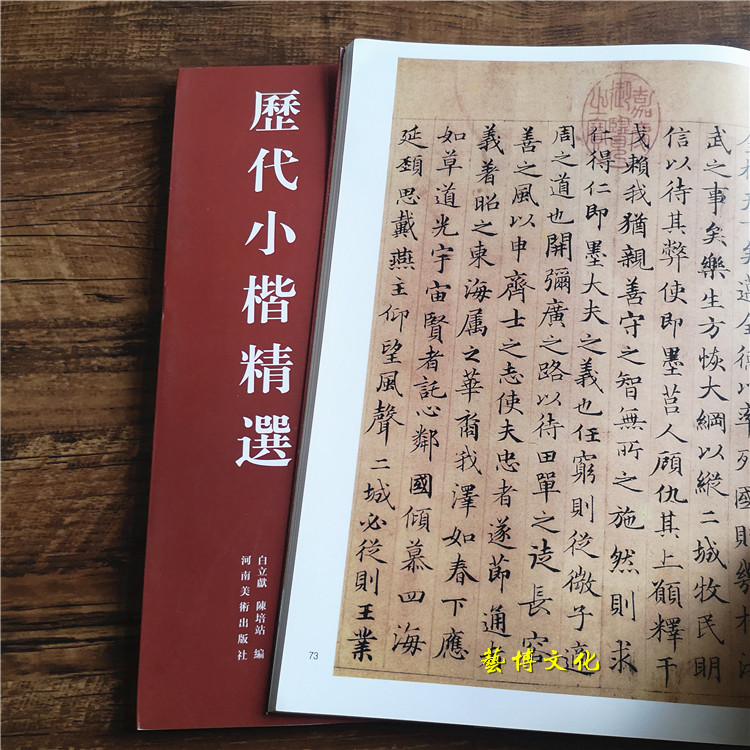 歷代小楷精選
白立獻 陳培站 編
河南美術出版社
矣邁全德以率列國則
武之事矣樂生方恢大綱以縱二城牧民明
信以待其弊使即墨莒人顧仇其上願釋干
戈賴我猶親善守之智無所之施然則求
仁得仁即墨大夫之義也任窮則從微子適
周之道也開彌廣之路以待田單之徒長容
善之風以申齊士之志使夫忠者遂節通
義著昭之東海屬之華裔我澤如春下應
如草道光宇宙賢者託心鄰國傾慕四海
延頸思戴燕主仰望風聲二城必從則王業
73
藝博文化